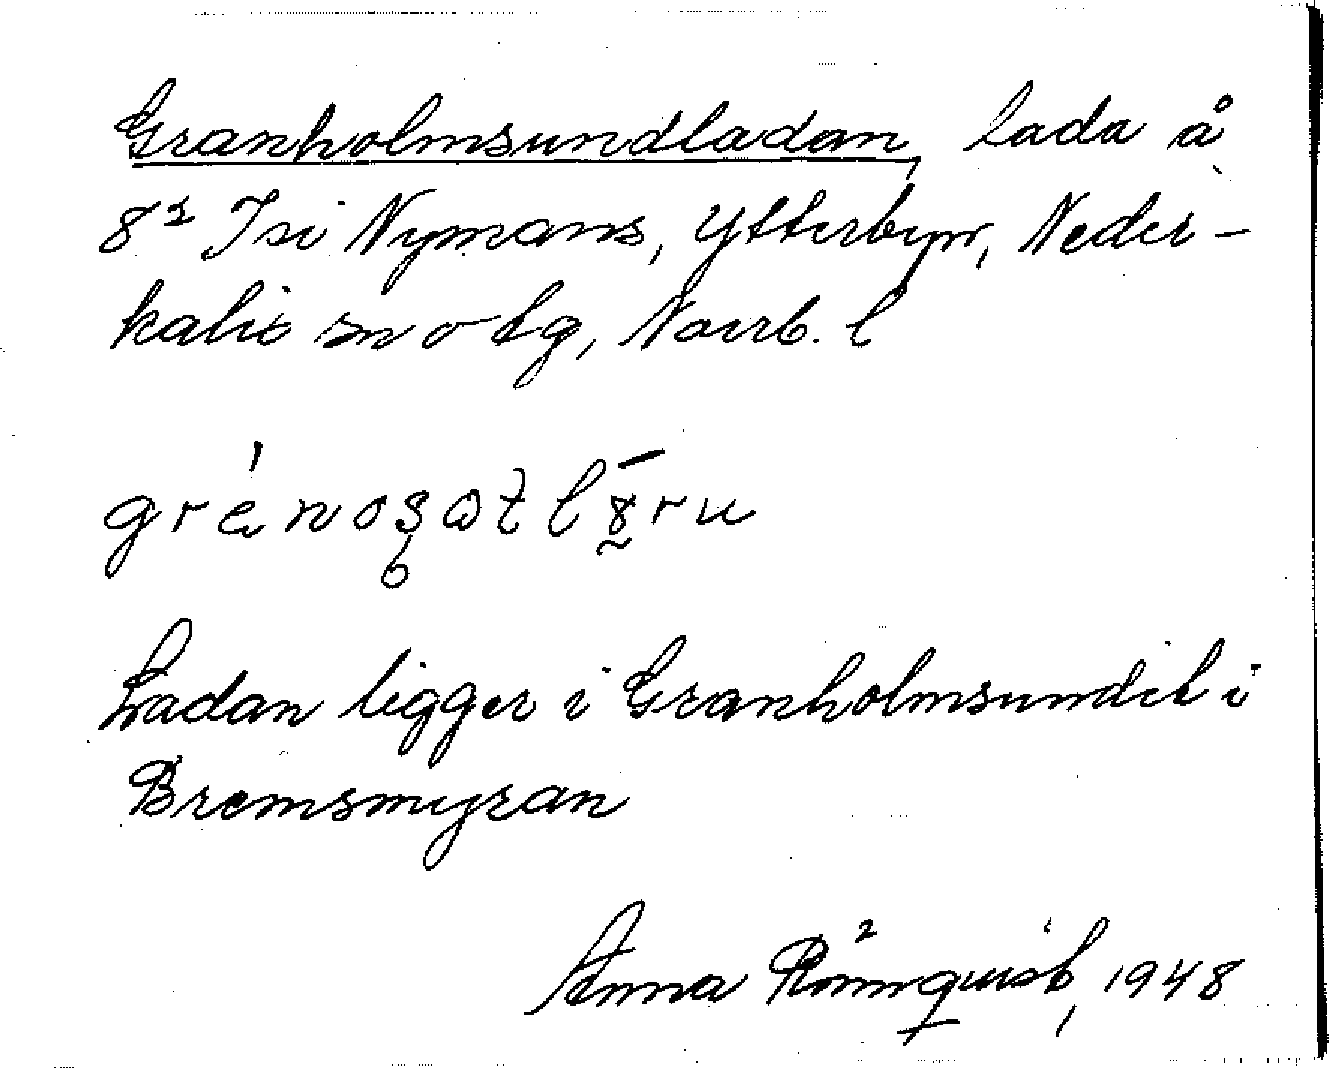 Granholmsundladan, Lada å
8² Isi Nymans, Ytterbyn, Neder-
kalix sn o tg, Norrb. l
Ladan ligger i Granholmsundet i
Bremsmyran
Anna Rönnquist, 1948